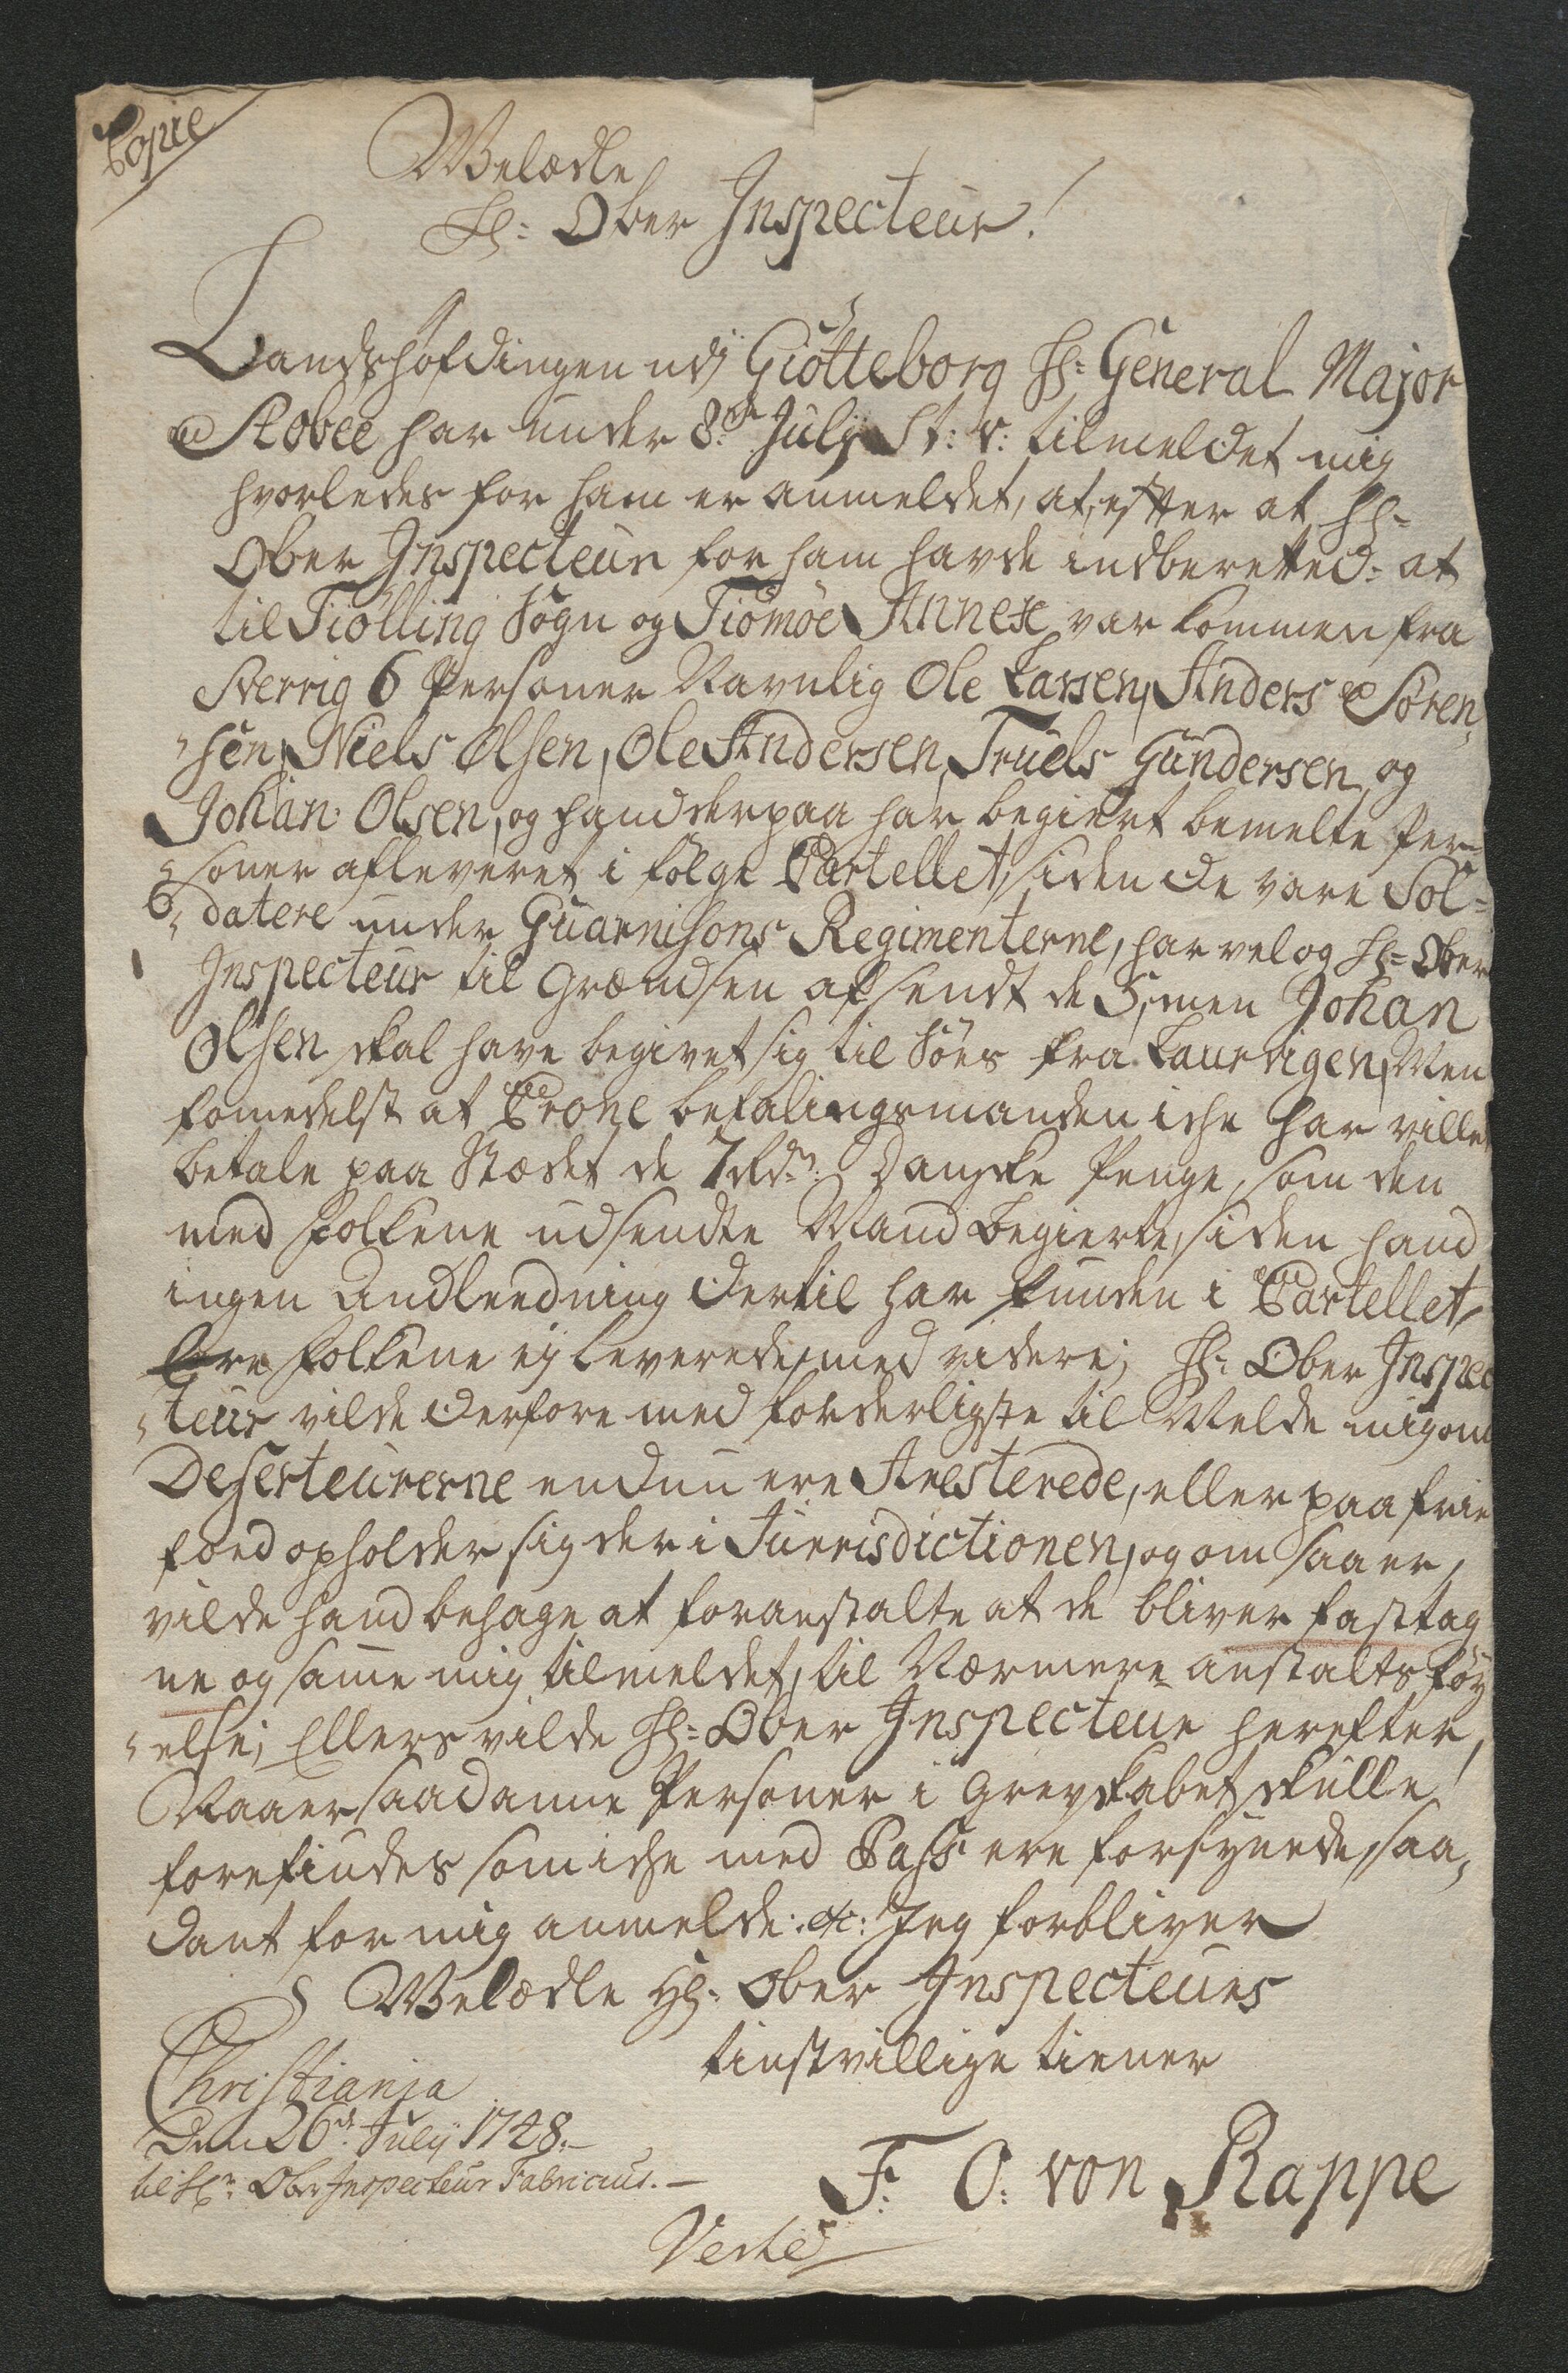 Copie
Velædle
Hr: Ober Inspecteur!
Landshöfdingen udj Giötteborg Hr: General Major
Kovee har under 8de July St: v: tilmeldet mig
hvorledes for ham er anmeldet, at, efter at Hr:
Ober Inspecteur for ham havde indberetted: at
til Tiølling Sogn og Tiömöe Annex var kommen fra
Sverrig 6 Personer Navnlig Ole Larsen, Anders Sören-
-sen, Niels Olsen, Ole Andersen, Truels Gundersen og
Johan Olsen, og hand derpaa har begiert bemelte Per-
soner afleveret i fölge Cartellet, siden de vare Sol-
datere under Guarnisons Regimenterne, har vel og Hr: Ober
Inspecteur til Grændsen afsendt de 5, men Johan
Olsen skal have begivet sig til Söes fra Laurvigen, Men
fomedelst at Crone befalingsmanden iche har villet
betale paa Stædet de 7 Rdr: Danske Penge, som den
med folkene udsendte Mand begierte, siden hand
ingen Andledning dertil har funden i Cartellet,
Ere folkene ej leverede, med videre; Hr: Ober Inspec
-teur vilde derfore med forderligste til Melde mig om
Deserteurerne endnu ere Aresterede, eller paa frie
foed opholder sig der i Jurisdictionen, og om saa er,
vilde hand behage at foranstalte at de bliver fasttag
ne og same mig tilmeldet, til Nærmere anstalts föy
-else; Ellers vilde Hr: Ober Inspecteur herefter,
Naaer saadanne Personer i Grevskabet skulle
forefindes som iche med Pass ere forsynede, saa,
dant for mig anmelde: etc: Jeg forbliver
Velædle Hr: Ober Inspecteurs
tienstvillige tiener
Christiania
Den 26de July 1748.-
til Hr: Ober Inspecteur Fabricius.-
F: O: von Rappe
Verte